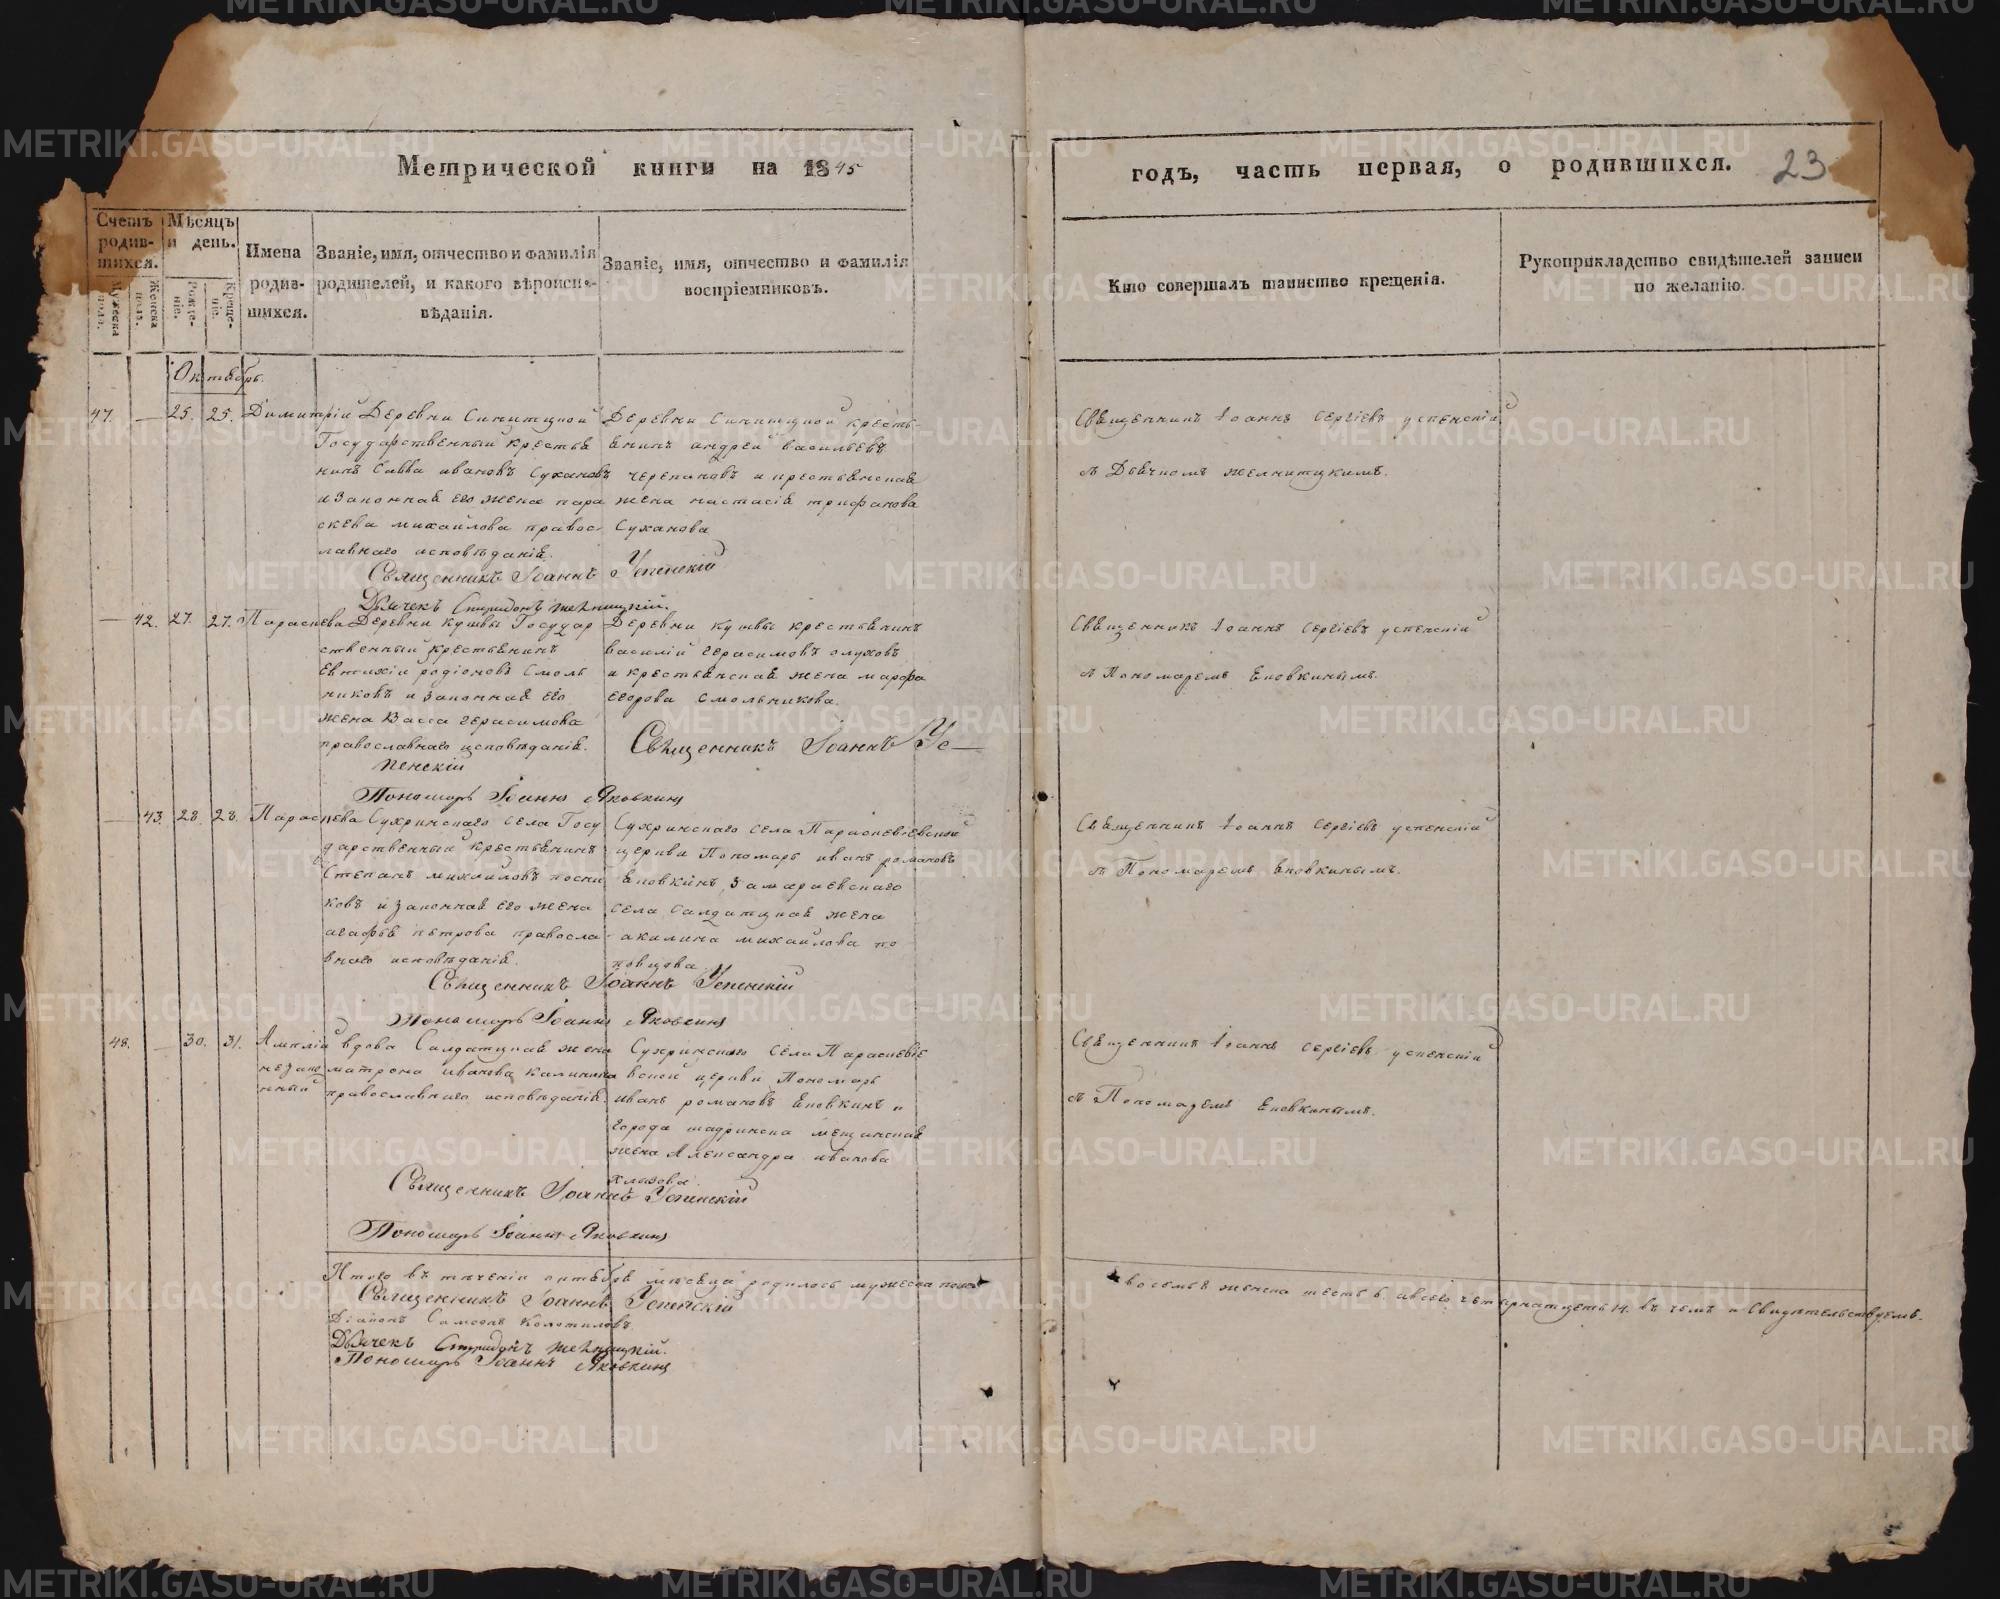 Метрической книги на 1845
годъ, часть первая, о родившихся. 23
Счетъ родившихся.
Мѣсяцъ и день.
Мужеска пола.
Женска пола.
Рожденіе.
Крещеніе.
Имена родившихся.
Званіе, имя, отчество и фамилія родителей, и какого вѣроисповѣданія.
Званіе, имя, отчество и фамилія воспріемниковъ.
Кто совершалъ таинство крещенія.
Рукоприкладство свидѣтелей записи по желанію.
Октябрь.
47. — 25. 25. Димитрій
Деревни Синицкой
Государственный крестья
нинъ Савва ивановъ Сухановъ
и законная его жена пара
скева михаилова правос
лавнаго исповѣданія.
Деревни Синицкой кресть
янинъ андрей васильевъ
черепановъ и крестьянская
жена настасія трифанова
Суханова
Священникъ Iоаннъ сергіевъ успенскій
съ Дьячкомъ желницкимъ.
Священникъ Іоаннъ Успенскій
Дьячекъ Спиридонъ Желницкій.
— 42. 27. 27. Параскева
Деревни кушвы Государ
ственный крестьянинъ
Евтихій родіоновъ Смоль
никовъ и законная его
жена Васса герасимова
православнаго исповѣданія.
Деревни кушвы крестьянинъ
василій герасимовъ
и крестьянская жена марфа
егорова смольникова.
Священникъ Iоаннъ сергіевъ успенскій
съ Пономаремъ Еновкинымъ.
Священникъ Іоаннъ Успенскій
Пономарь Іоаннъ Яковкинъ
— 43. 28. 28. Параскева
Сухринскаго села Госу
дарственный крестьянинъ
Степанъ михаиловъ
ковъ и законная его жена
агафья петрова правосла
внаго исповѣданія.
Сухринскаго села Параскевіевской
церкви Пономарь иванъ романовъ
Еновкинъ, Замараевскаго
села Салдатцкая жена
акилина михаилова по
повцова
Священникъ Iоаннъ сергіевъ успенскій
съ Пономаремъ Еновкинымъ.
Священникъ Іоаннъ Успенскій
Пономарь Іоаннъ Яковкинъ
48. — 30. 31. Амплій
незако
нный
вдова Салдатцкая жена
матрона иванова калинина
православнаго исповѣданія.
Сухринскаго села Параскевіе
вской церкви Пономарь
иванъ романовъ Еновкинъ и
города шадринска мещанская
жена Александра иванова
Священникъ Iоаннъ сергіевъ успенскій
съ Пономаремъ Еновкинымъ.
Священникъ Іоаннъ Успенскій
Пономарь Іоаннъ Яковкинъ
Итого въ теченіи октября мѣсяца родилось мужеска пола восемь 8 женска шесть 6. авсего четырнатцеть 14. въ чемъ и свидетельствуемъ.
Священникъ Іоаннъ Успенскій
Діаконъ Самсонъ Колотиловъ.
Дьячекъ Спиридонъ Желницкій.
Пономарь Іоаннъ Яковкинъ
METRIKI.GASO-URAL.RU